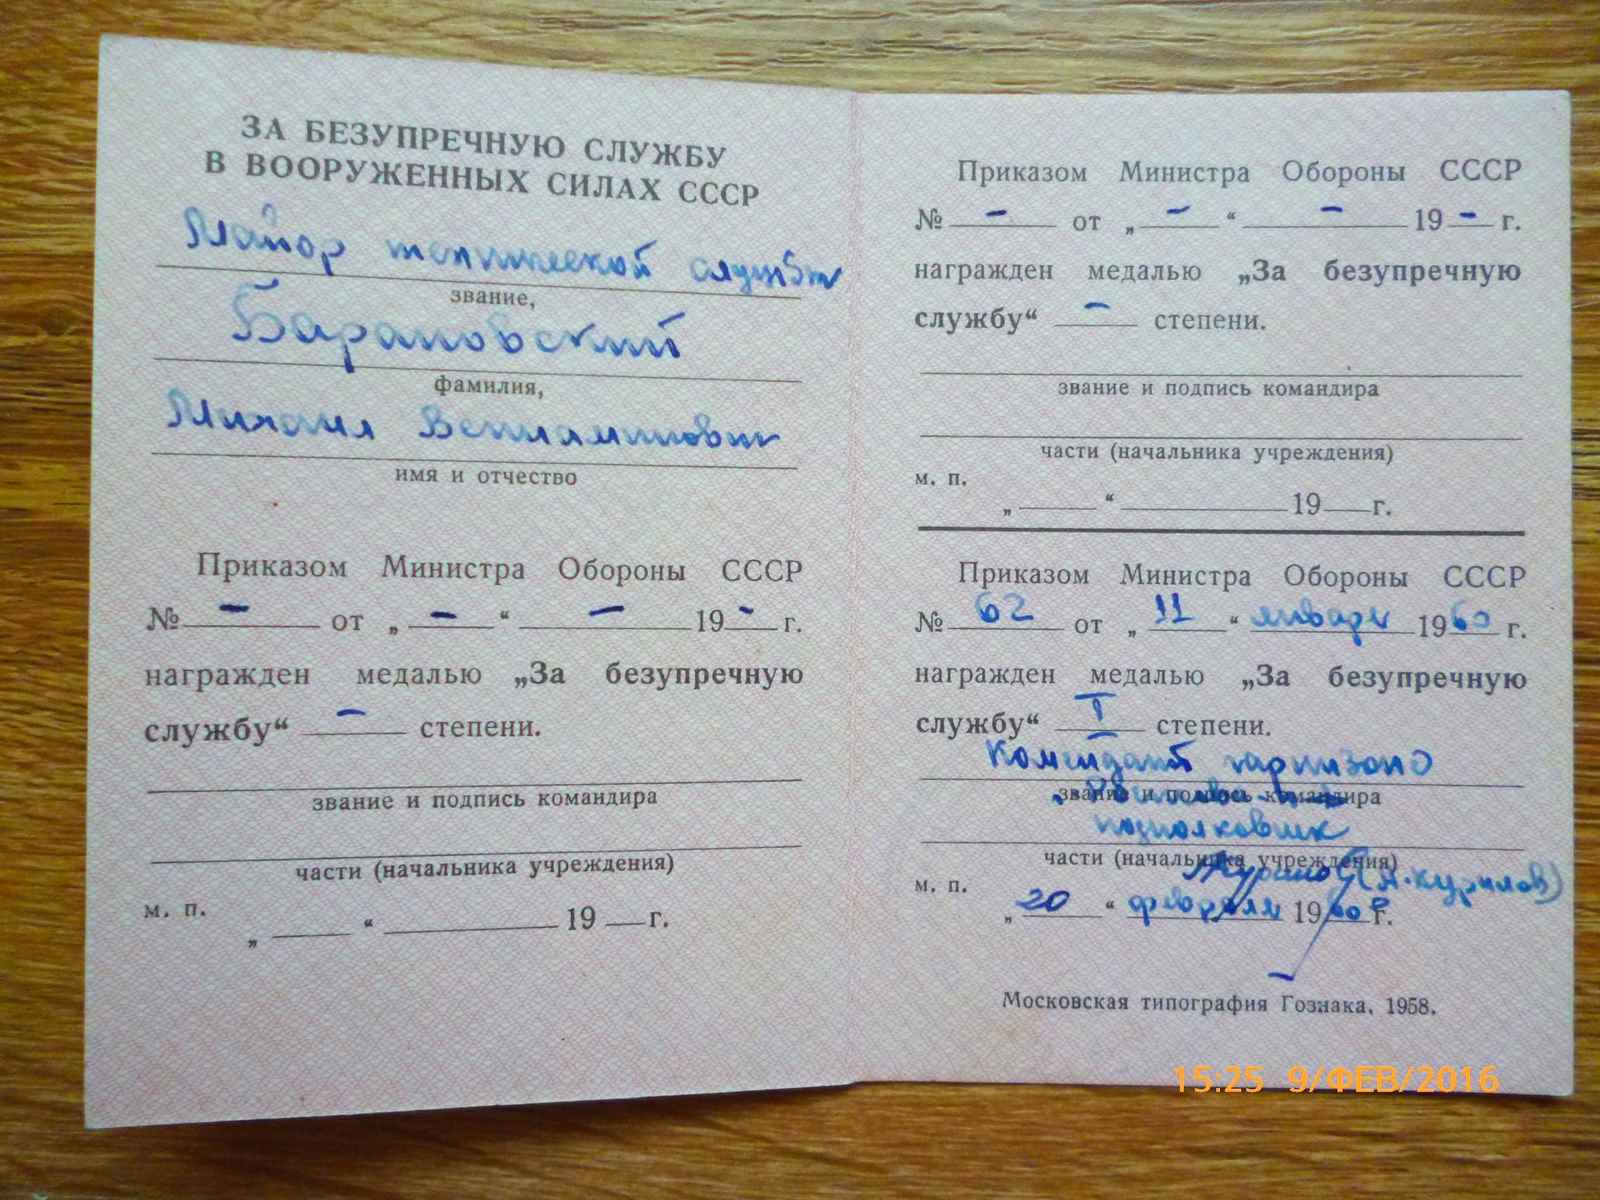 ЗА БЕЗУПРЕЧНУЮ СЛУЖБУ
В ВООРУЖЕННЫХ СИЛАХ СССР
Майор технической службы
звание,
Барановский
фамилия,
Михаил Вениаминович
имя и отчество
Приказом Министра Обороны СССР
№ – от „ – “ – 19 – г.
награжден медалью „За безупречную
службу“ – степени.
звание и подпись командира
части (начальника учреждения)
м. п.
„ “ 19 г.
Приказом Министра Обороны СССР
№ – от „ – “ – 19 – г.
награжден медалью „За безупречную
службу“ – степени.
звание и подпись командира
части (начальника учреждения)
м. п.
„ “ 19 г.
Приказом Министра Обороны СССР
№ 62 от „ 11 “ января 1960 г.
награжден медалью „За безупречную
службу“ I степени.
Комендант гарнизона
звание и подпись командира
подполковник
части (начальника учреждения)
(А. Курилов)
м. п.
„ 20 “ февраля 1960 г.
Московская типография Гознака, 1958.
15:25 9/ФЕВ/2016